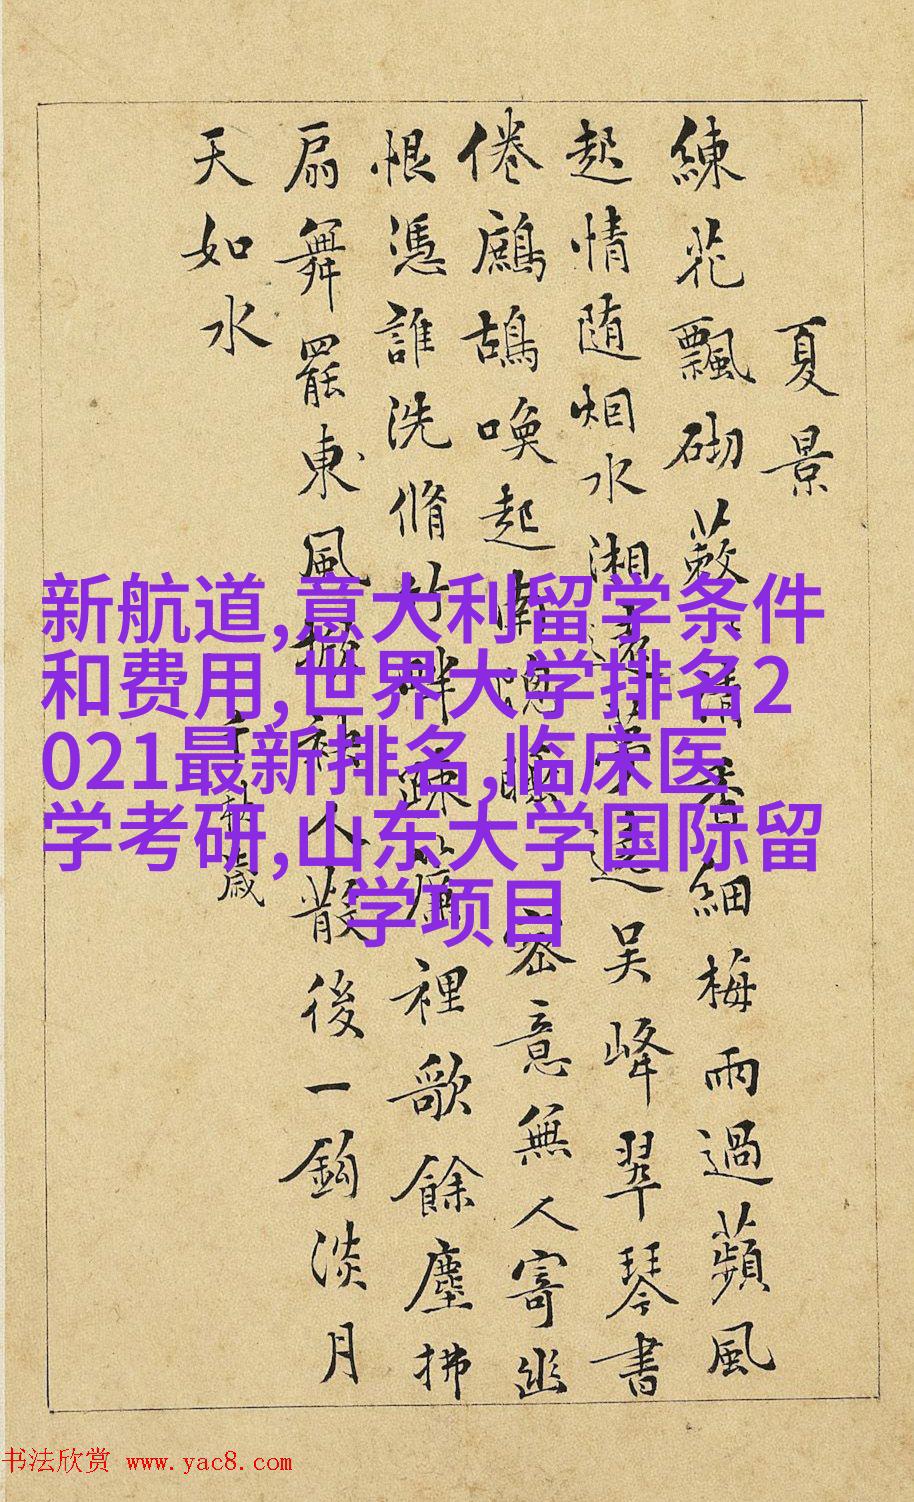 夏景
練花飄砌蔌々清香細梅雨過蘋風
起情随烟水湘遠夢遶吳峰翠琴書
倦鷓鴣喚起南窓睡密意無人寄幽
恨憑誰洗脩竹畔踈簾裡歌餘塵拂
扇舞罷東風掀袂人散後一鈎淡月
天如水
千秋歲
新航道,意大利留学条件
和费用,世界大学排名2
021最新排名,临床医
学考研,山东大学国际留
学项目
书法欣赏 www.yac8.com